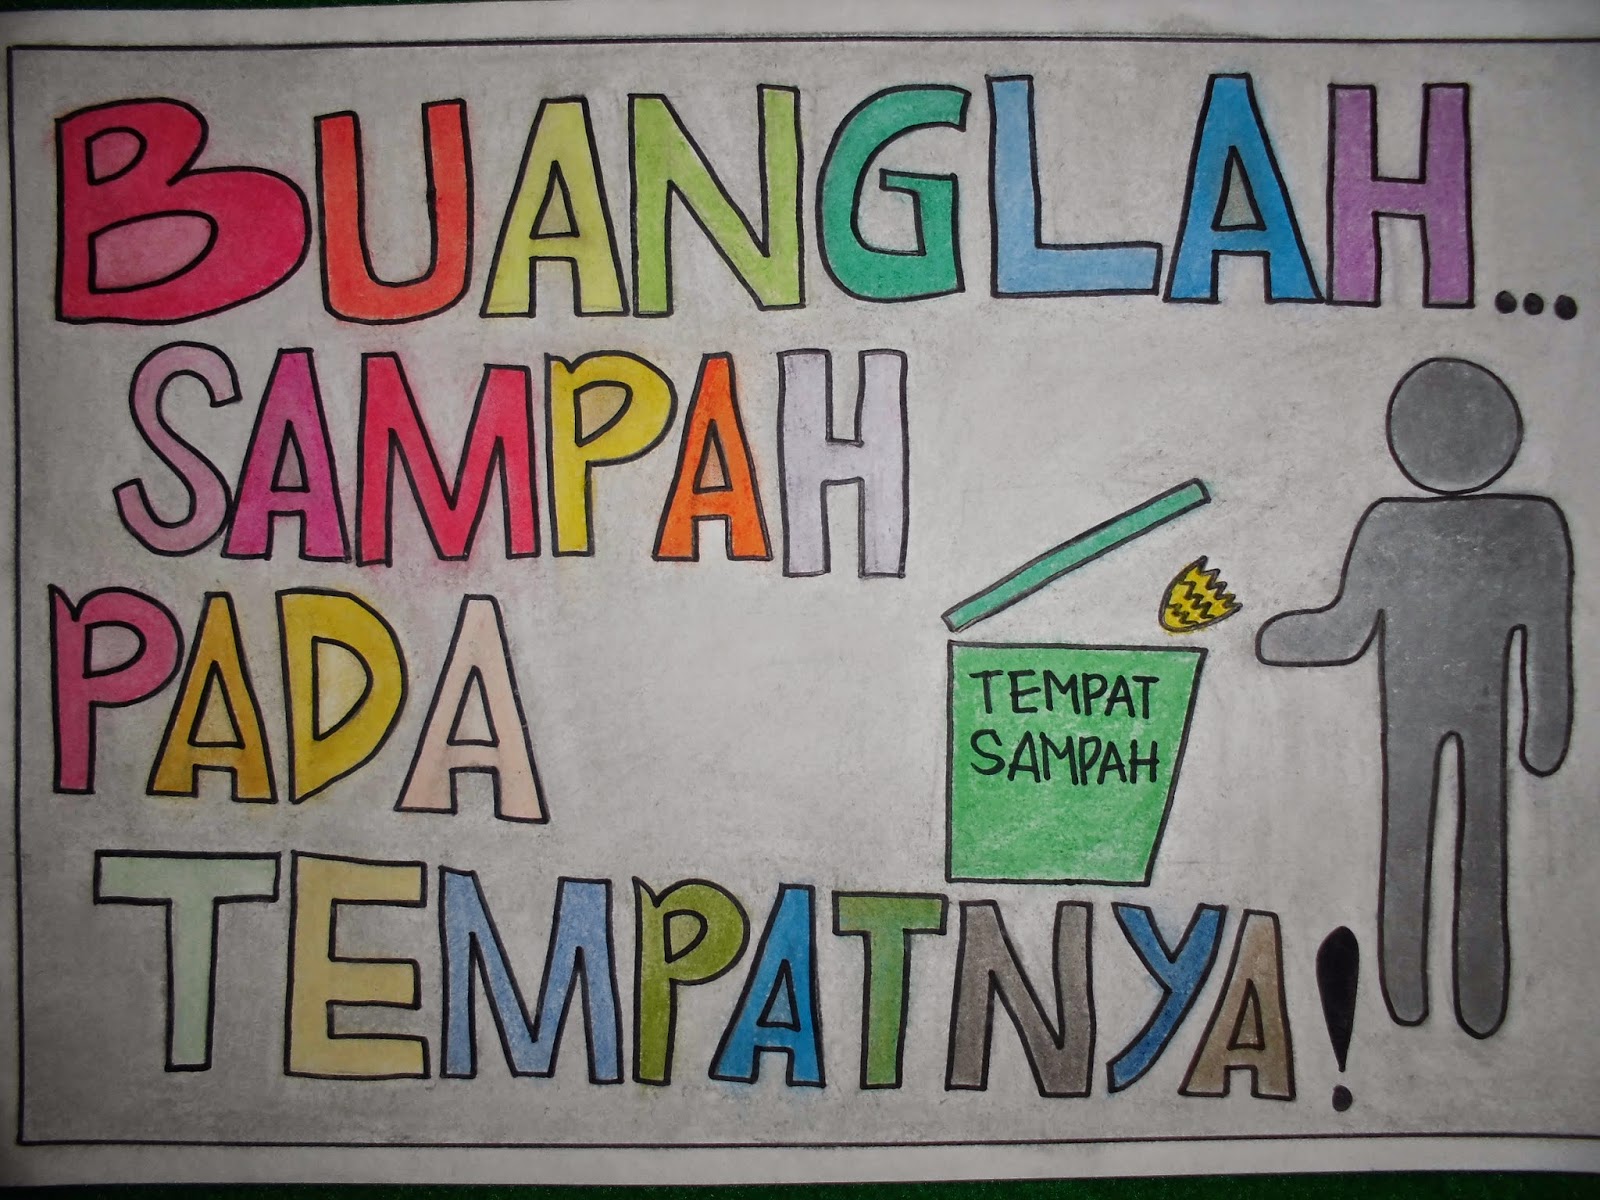 BUANGLAH...
SAMPAH
PADA
TEMPATNYA!
TEMPAT
SAMPAH